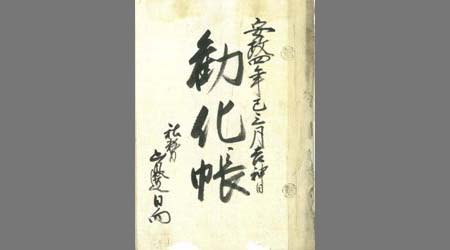 安政四年巳三月吉祥日
勧化帳
社務
日向